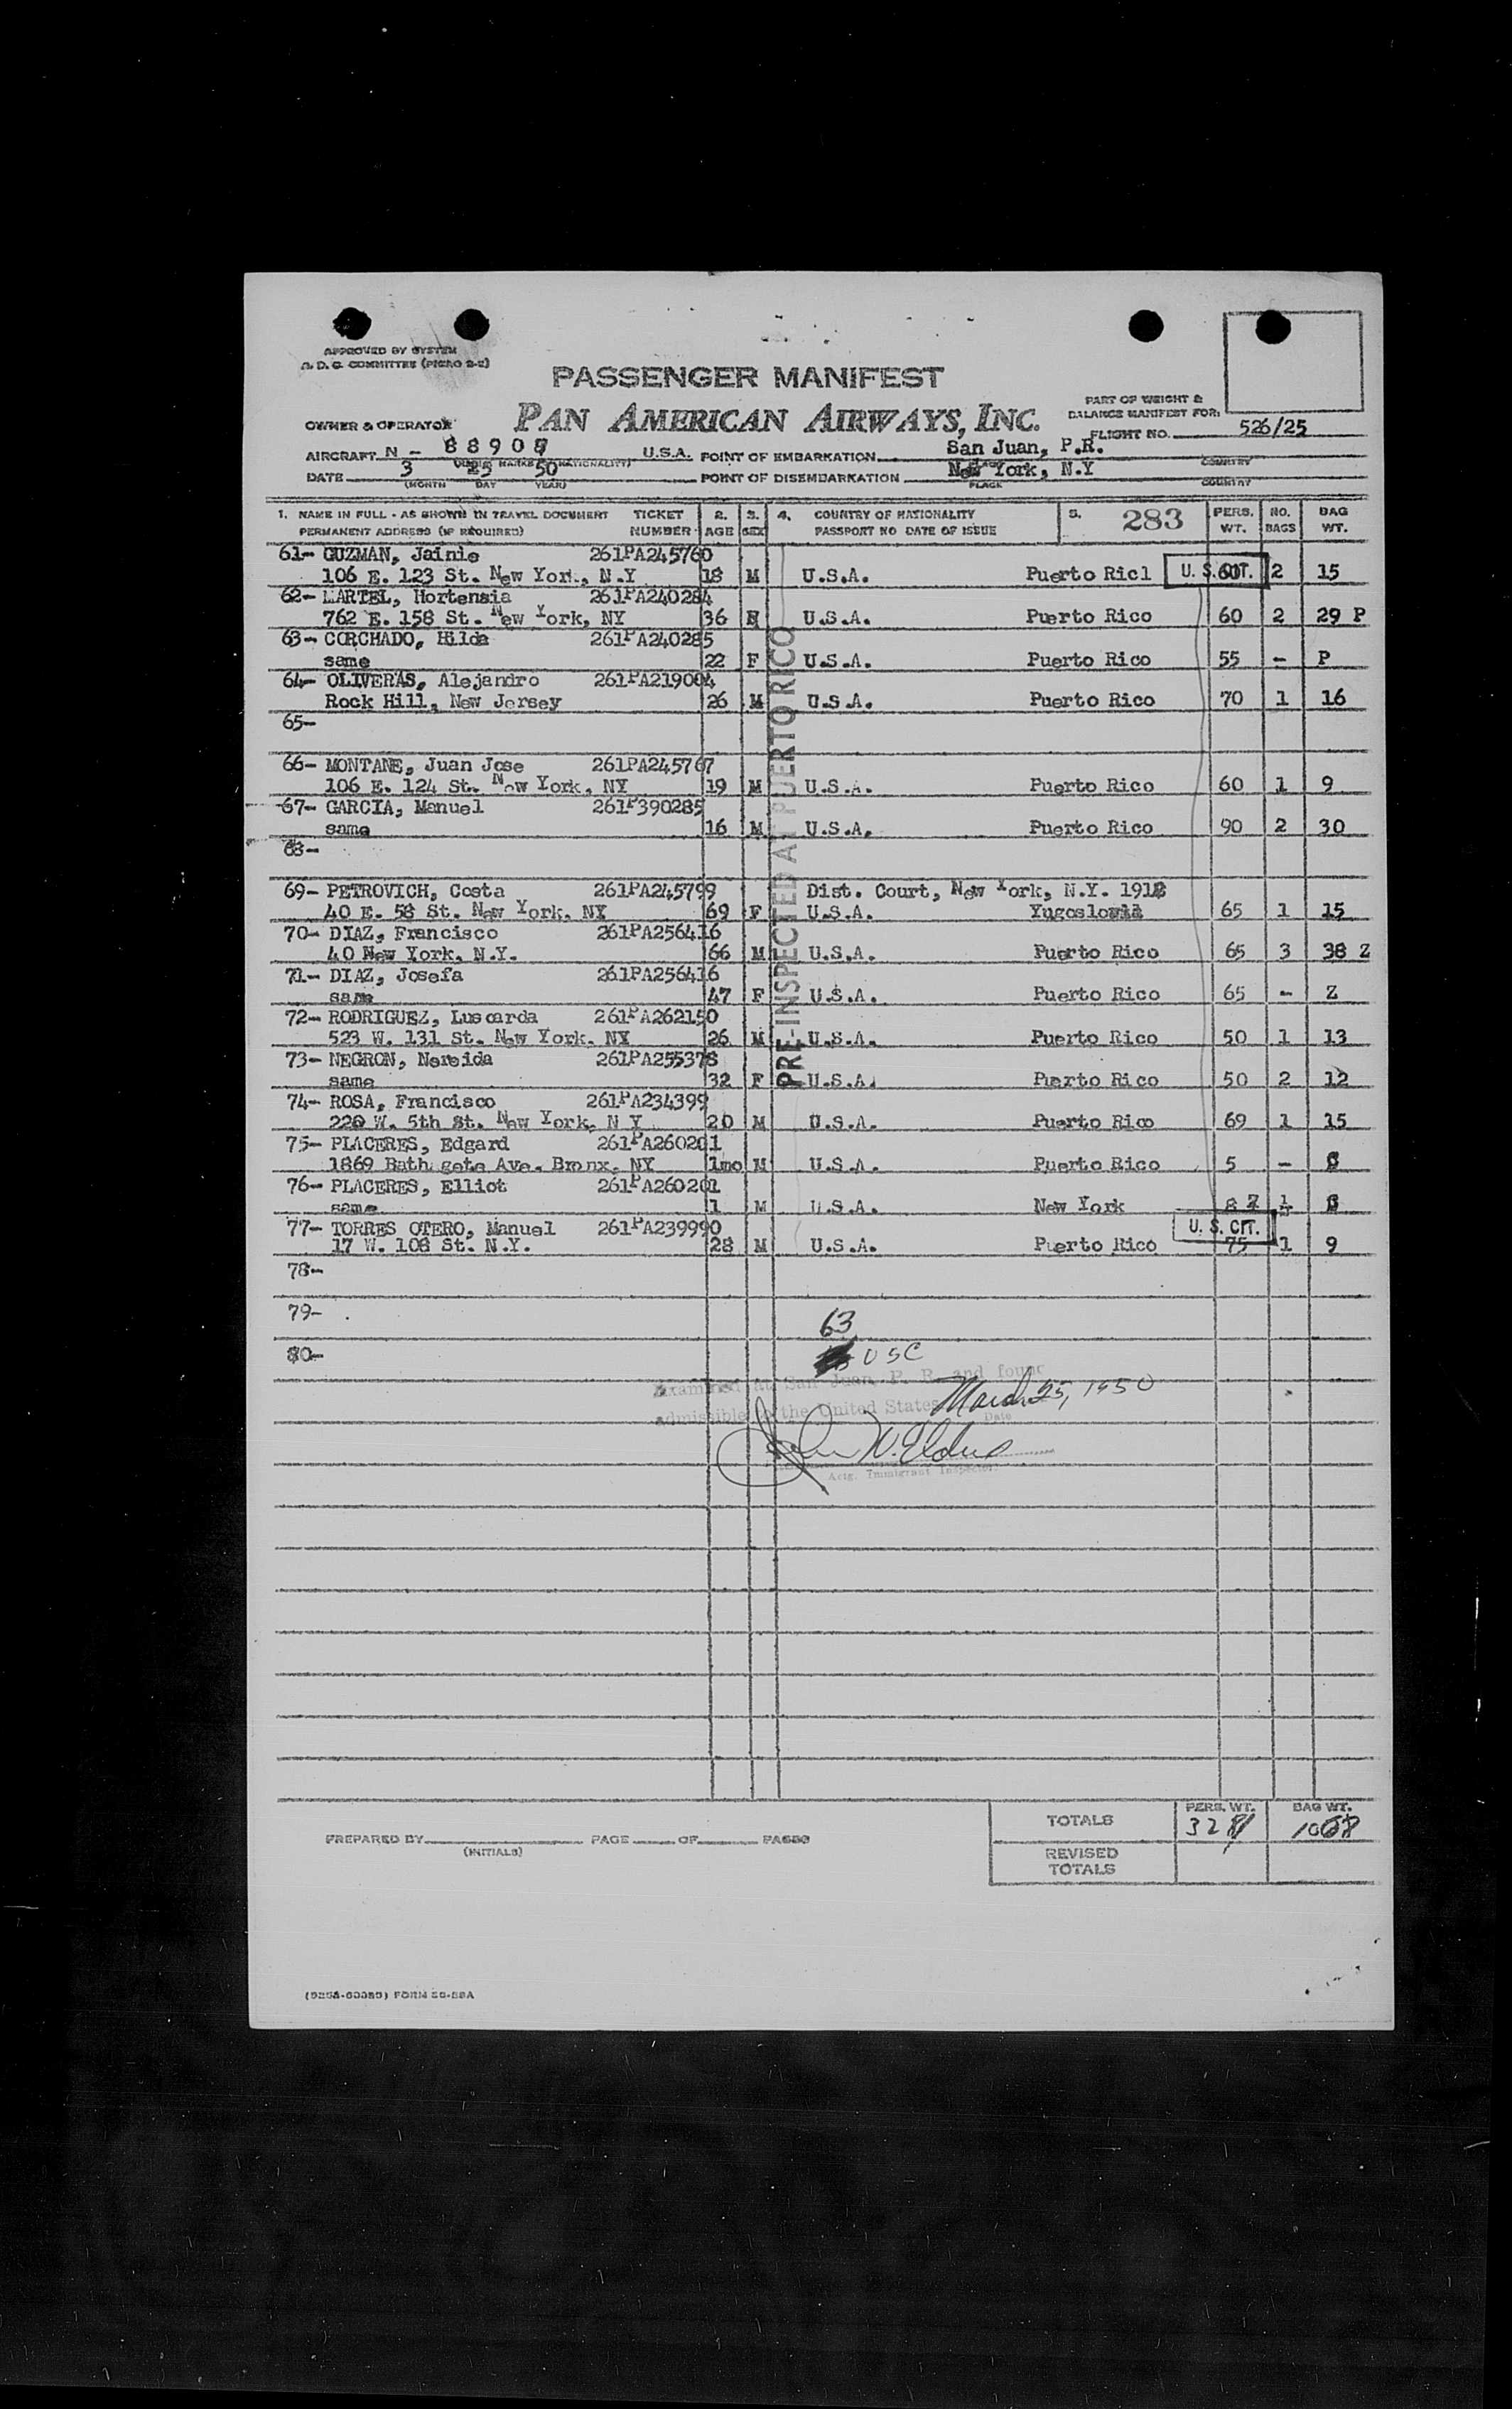 APPROVED BY SYSTEM
A. D. C. COMMITTEE (PICAO 2-2)
PASSENGER MANIFEST
PAN AMERICAN AIRWAYS, INC.
PART OF WEIGHT &
BALANCE MANIFEST FOR:
OWNER & OPERATOR
FLIGHT NO. 526/25
AIRCRAFT N - 88909 U.S.A. POINT OF EMBARKATION San Juan, P.R.
COUNTRY
DATE 3 25 50 POINT OF DISEMBARKATION New York, N.Y
(MONTH DAY YEAR) PLACE COUNTRY
1. NAME IN FULL - AS SHOWN IN TRAVEL DOCUMENT TICKET 2. 3. 4. COUNTRY OF NATIONALITY 5. 283 PERS. NO. BAG
PERMANENT ADDRESS (IF REQUIRED) NUMBER AGE SEX PASSPORT NO DATE OF ISSUE WT. BAGS WT.
61- GUZMAN, Jainie 261PA245760
106 E. 123 St. New York, N.Y 18 M U.S.A. Puerto Ricl U. S. CIT. 60 2 15
62- MARTEL, Hortensia 261PA240284
762 E. 158 St. New York, NY 36 U.S.A. Puerto Rico 60 2 29 P
63- CORCHADO, Hilda 261PA240285
same 22 F U.S.A. Puerto Rico 55 - P
64- OLIVERAS, Alejandro 261PA219004
Rock Hill, New Jersey 26 M U.S.A. Puerto Rico 70 1 16
65-
66- MONTANE, Juan Jose 261PA245767
106 E. 124 St. New York, NY 19 M U.S.A. Puerto Rico 60 1 9
67- GARCIA, Manuel 261P390285
same 16 M U.S.A. Puerto Rico 90 2 30
68-
69- PETROVICH, Costa 261PA245799 Dist. Court, New York, N.Y. 1912
40 E. 58 St. New York, NY 69 F U.S.A. Yugoslowia 65 1 15
70- DIAZ, Francisco 261PA256416
40 New York, N.Y. 66 M U.S.A. Puerto Rico 65 3 38 Z
71- DIAZ, Josefa 261PA256416
same 47 F U.S.A. Puerto Rico 65 - Z
72- RODRIGUEZ, Luscarda 261PA262150
523 W. 131 St. New York, NY 26 M U.S.A. Puerto Rico 50 1 13
73- NEGRON, Nereida 261PA255378
same 32 F U.S.A. Puerto Rico 50 2 12
74- ROSA, Francisco 261PA234399
220 W. 5th St. New York, N Y 20 M U.S.A. Puerto Rico 69 1 15
75- PLACERES, Edgard 261PA260201
1869 Bathgate Ave. Bronx, NY 1mo M U.S.A. Puerto Rico 5 -
76- PLACERES, Elliot 261PA260201
same 1 M U.S.A. New York
77- TORRES OTERO, Manuel 261PA239990 U. S. CIT.
17 W. 108 St. N.Y. 28 M U.S.A. Puerto Rico 75 1 9
PRE-INSPECTED AT PUERTO RICO
78-
79-
63
80- USC
Examined at San Juan, P. R. and found
March 25, 1950
admissible to the United States Date
Actg. Immigrant Inspector
TOTALS PERS. WT. BAG WT.
PREPARED BY PAGE OF PAGES
(INITIALS)
REVISED
TOTALS